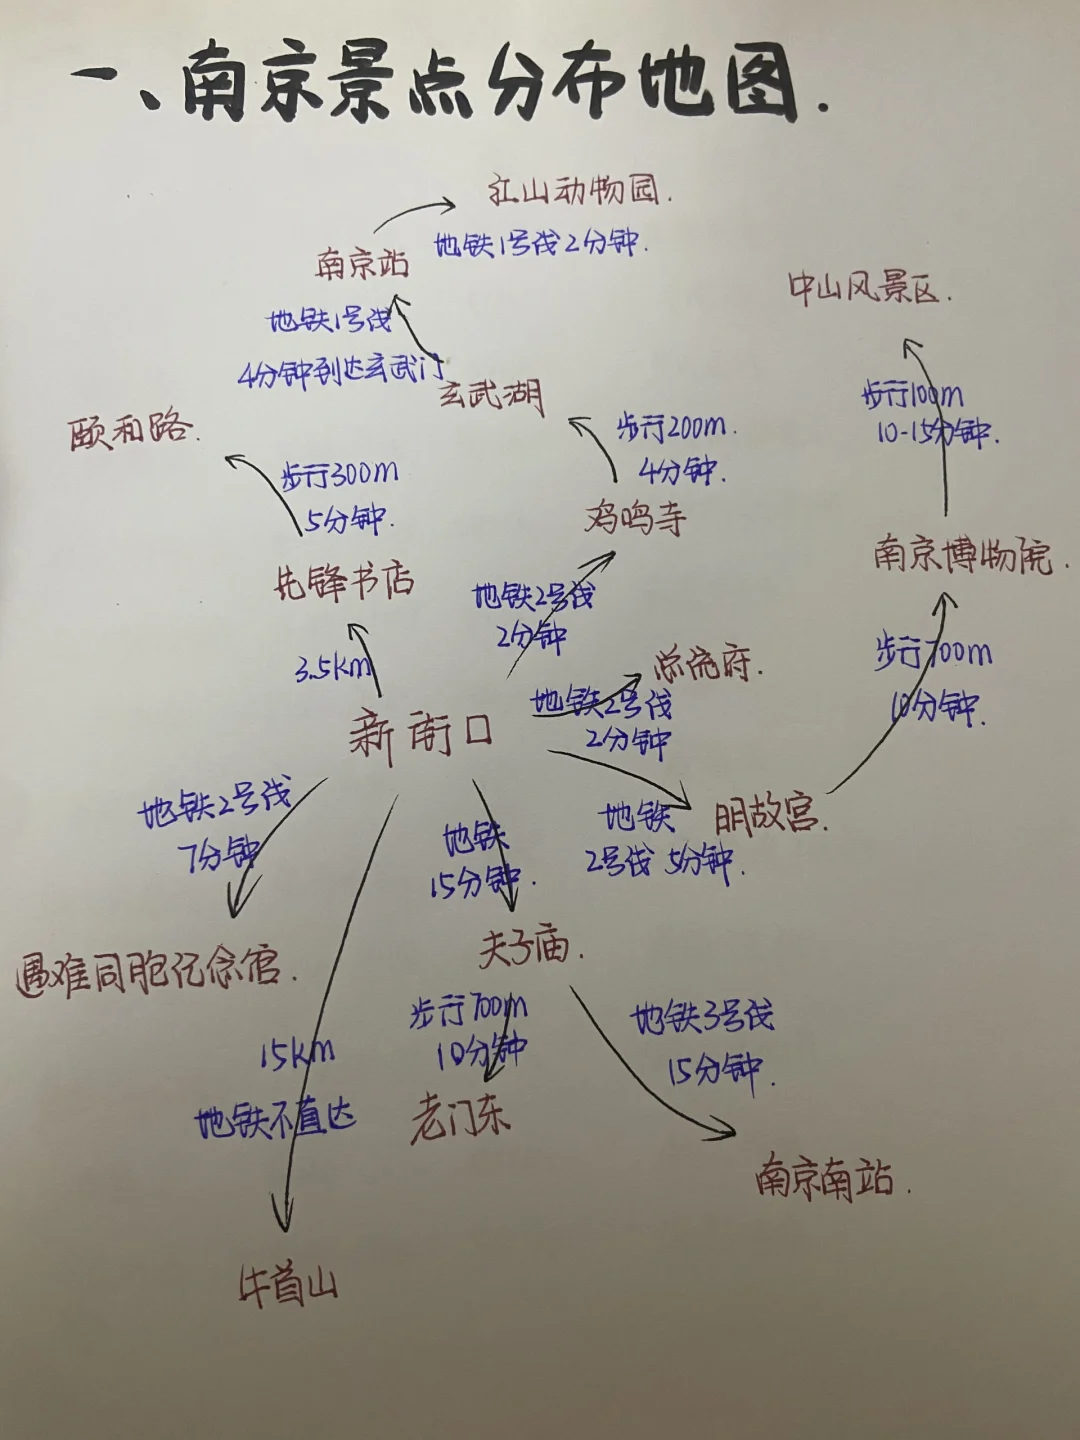 一、南京景点分布地图.
红山动物园.
地铁1号线2分钟.
南京站
中山风景区.
地铁1号线
4分钟到达玄武门
玄武湖
步行100m
10-15分钟.
颐和路.
步行200m.
4分钟.
步行300m
5分钟.
鸡鸣寺
南京博物院.
先锋书店
地铁2号线
2分钟
3.5km
总统府.
步行700m
10分钟.
地铁2号线
2分钟
新街口
地铁2号线
7分钟
地铁
15分钟.
地铁
2号线 5分钟.
明故宫.
夫子庙.
遇难同胞纪念馆.
步行700m
10分钟
地铁3号线
15分钟.
15km
地铁不直达
老门东
南京南站.
牛首山